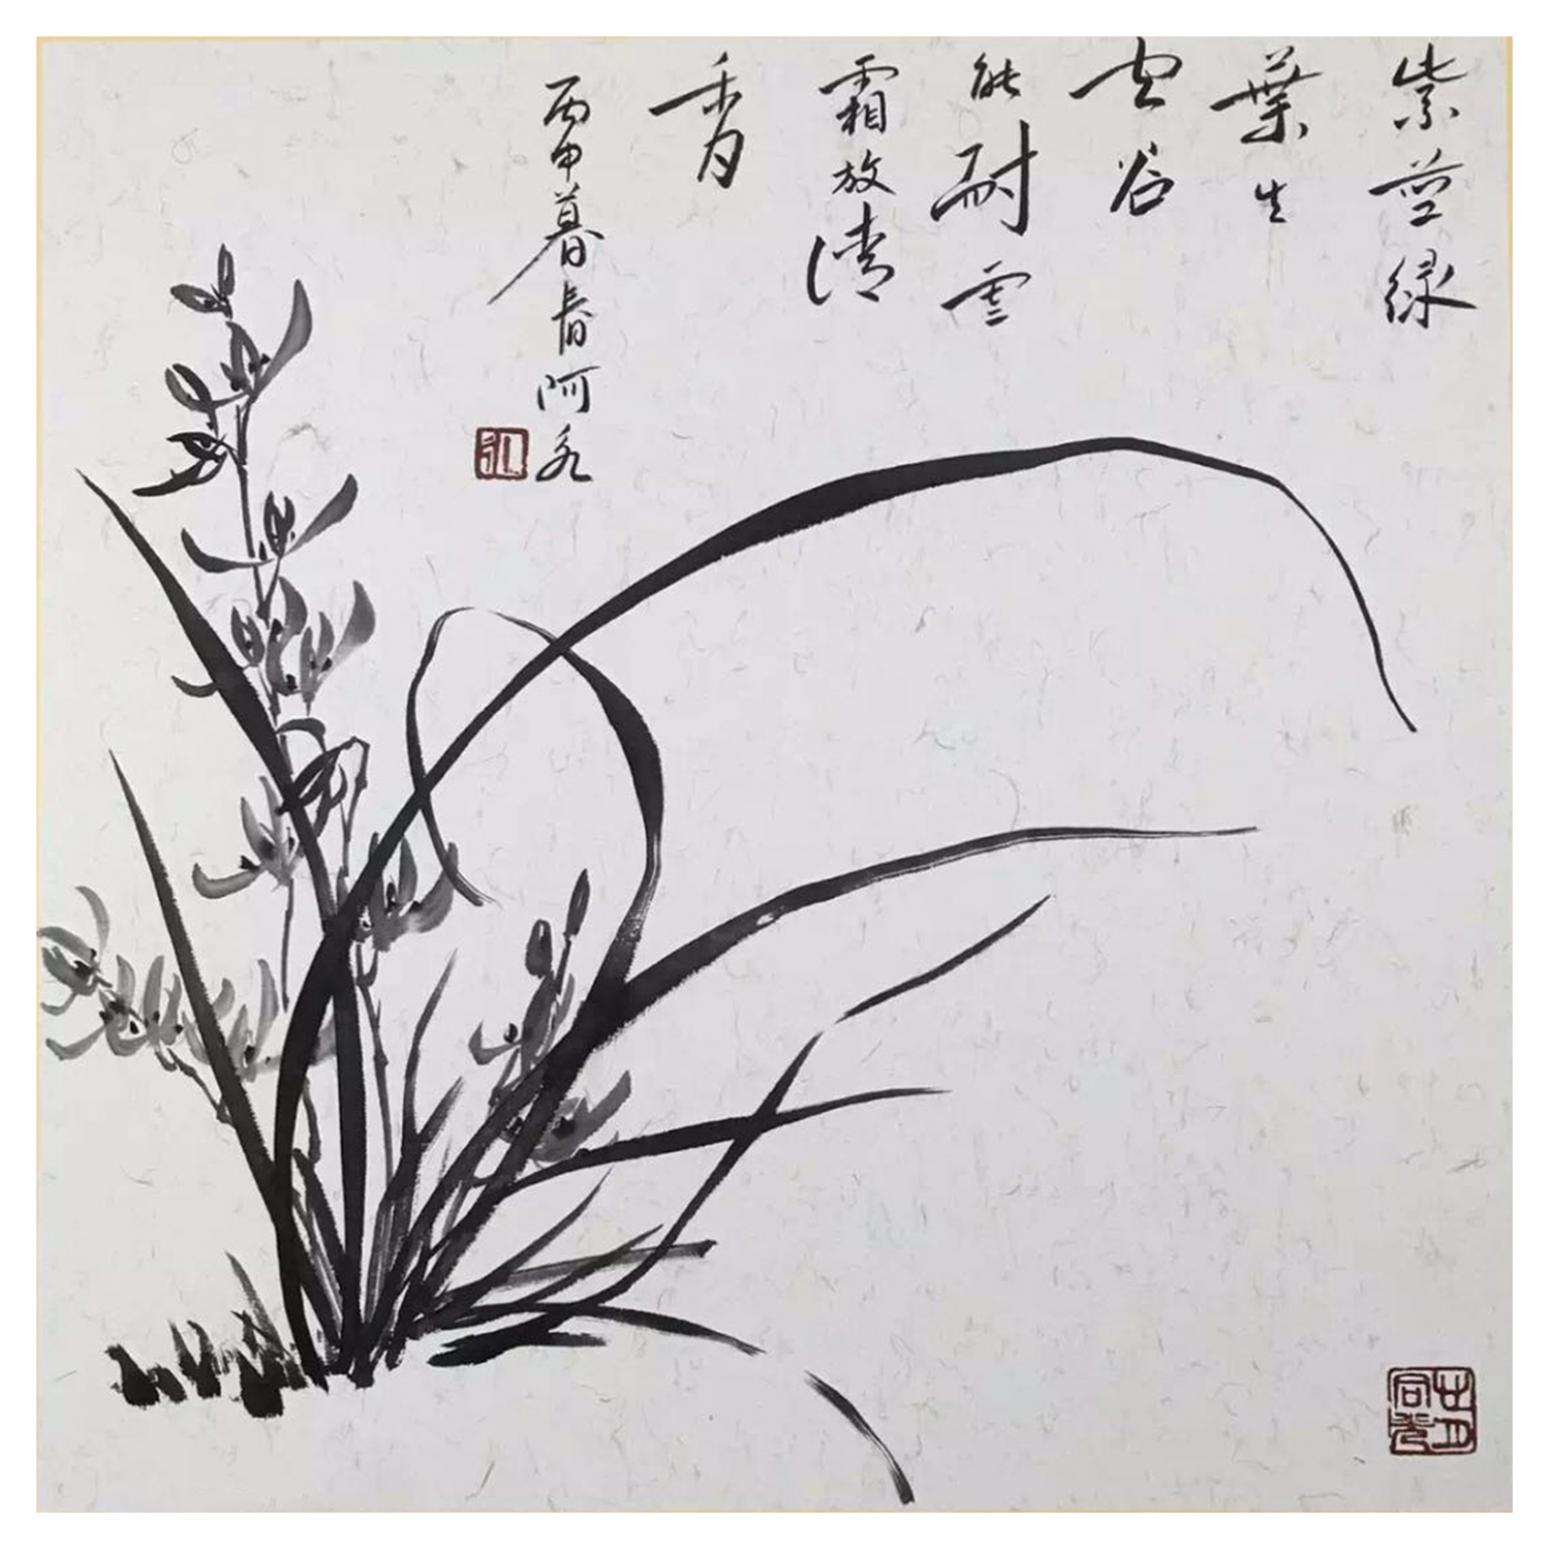 紫莖綠
葉生
空谷
能耐雪
霜放清
香
丙申暮春阿